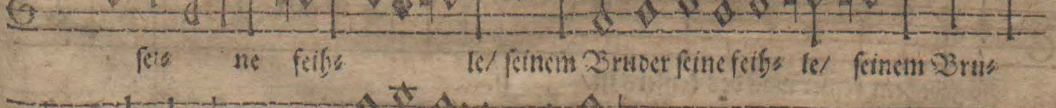 sei⸗ ne feih⸗ le/ seinem Bruder seine feih⸗ le/ seinem Bru⸗